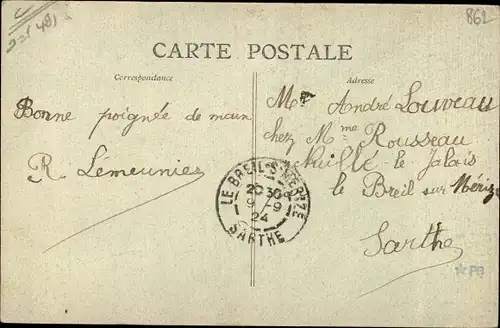 862
CARTE POSTALE
Correspondance
Adresse
Bonne poignée de main
R. Lémeunier
Mr André Louveau
chez Mme Rousseau
Thuillé le Jalais
le Breil sur Mérize
Sarthe
LE BREIL-S-MÉRIZE
20 30
9 - 9
24
SARTHE
*PB